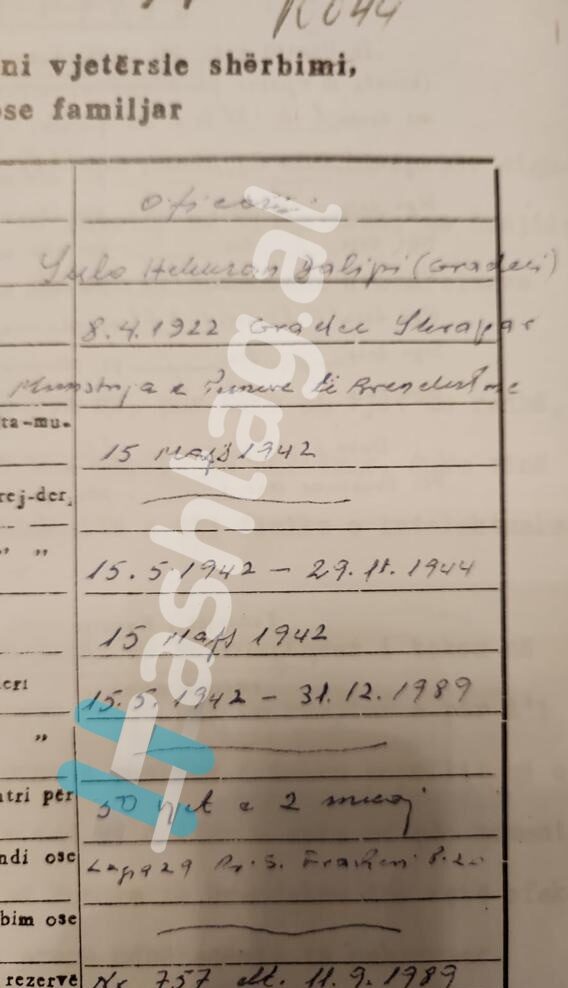 R 044
ni vjetërsie shërbimi,
ose familjar
Oficer
Sulo Hekuran Dalipi (Gradeci)
8.4.1922 Gradec Skrapar
e Punëve të Brendshme
ta-mu.
15 Majs 1942
rej-der,
" "
15.5.1942 - 29.11.1944
15 Majs 1942
eri
15.5.1942 - 31.12.1989
"
ntri për
50 vjet e 2 muaj
ndi ose
Lagja 29 Rr. S. Frasheri P.20
bim ose
rezervë
Nr 757 dt. 11.9.1989
#ashtag.al